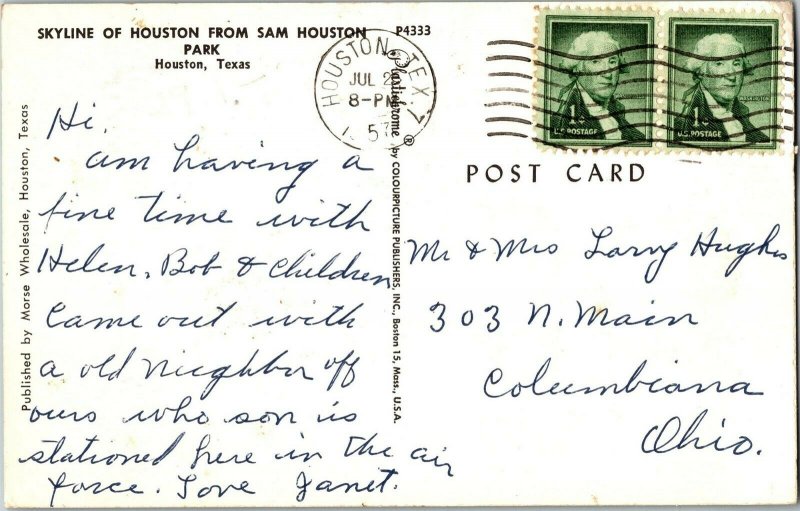 SKYLINE OF HOUSTON FROM SAM HOUSTON
PARK
Houston, Texas
P4333
HOUSTON, TEX. 7
JUL 2
8-PM
57
1¢
U.S. POSTAGE
WASHINGTON
1¢
U.S. POSTAGE
WASHINGTON
POST CARD
Published by Morse Wholesale, Houston, Texas
Plastichrome ® by COLOURPICTURE PUBLISHERS, INC., Boston 15, Mass., U.S.A.
Hi,
am having a
fine time with
Helen, Bob & Children
Came out with
a old nieghbor off
ours who son is
stationed here in the air
force. Love Janet.
Mr & Mrs Larry Hughes
303 N. Main
Columbiana
Ohio.